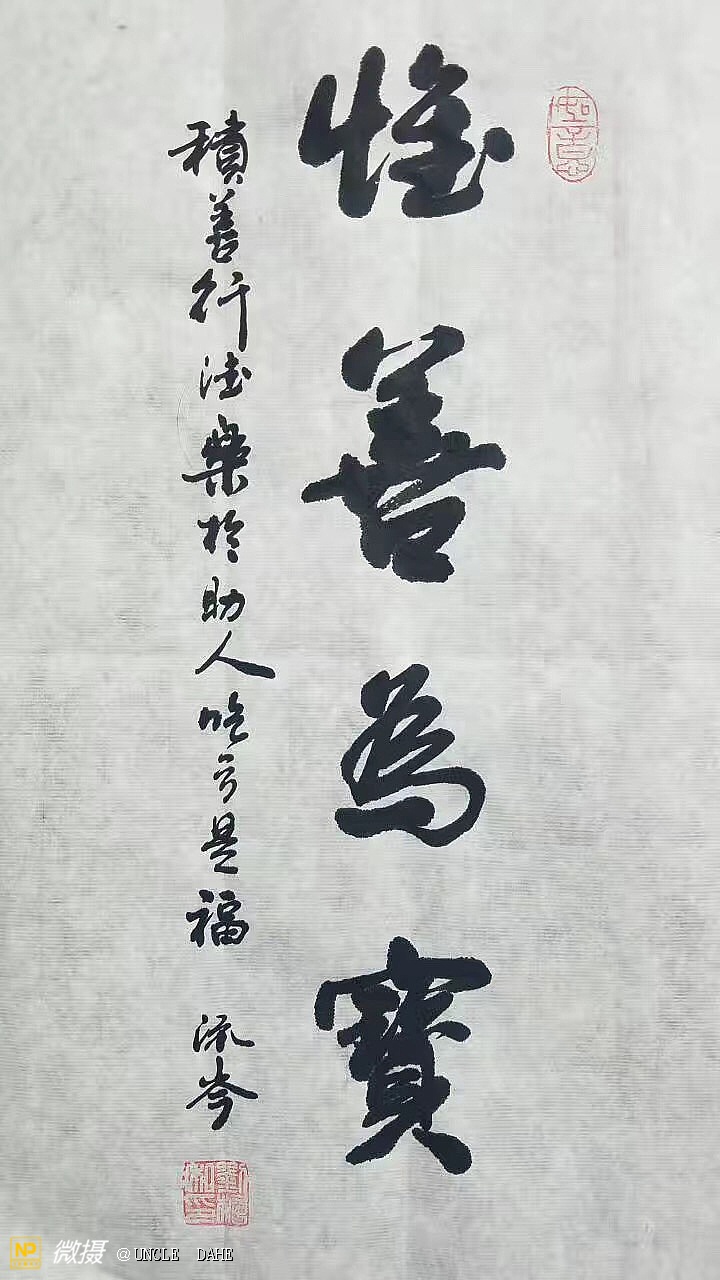 惟善為寶
積善行德樂於助人吃亏是福
流岑
如意
NP 微摄 @UNCLE DAHE